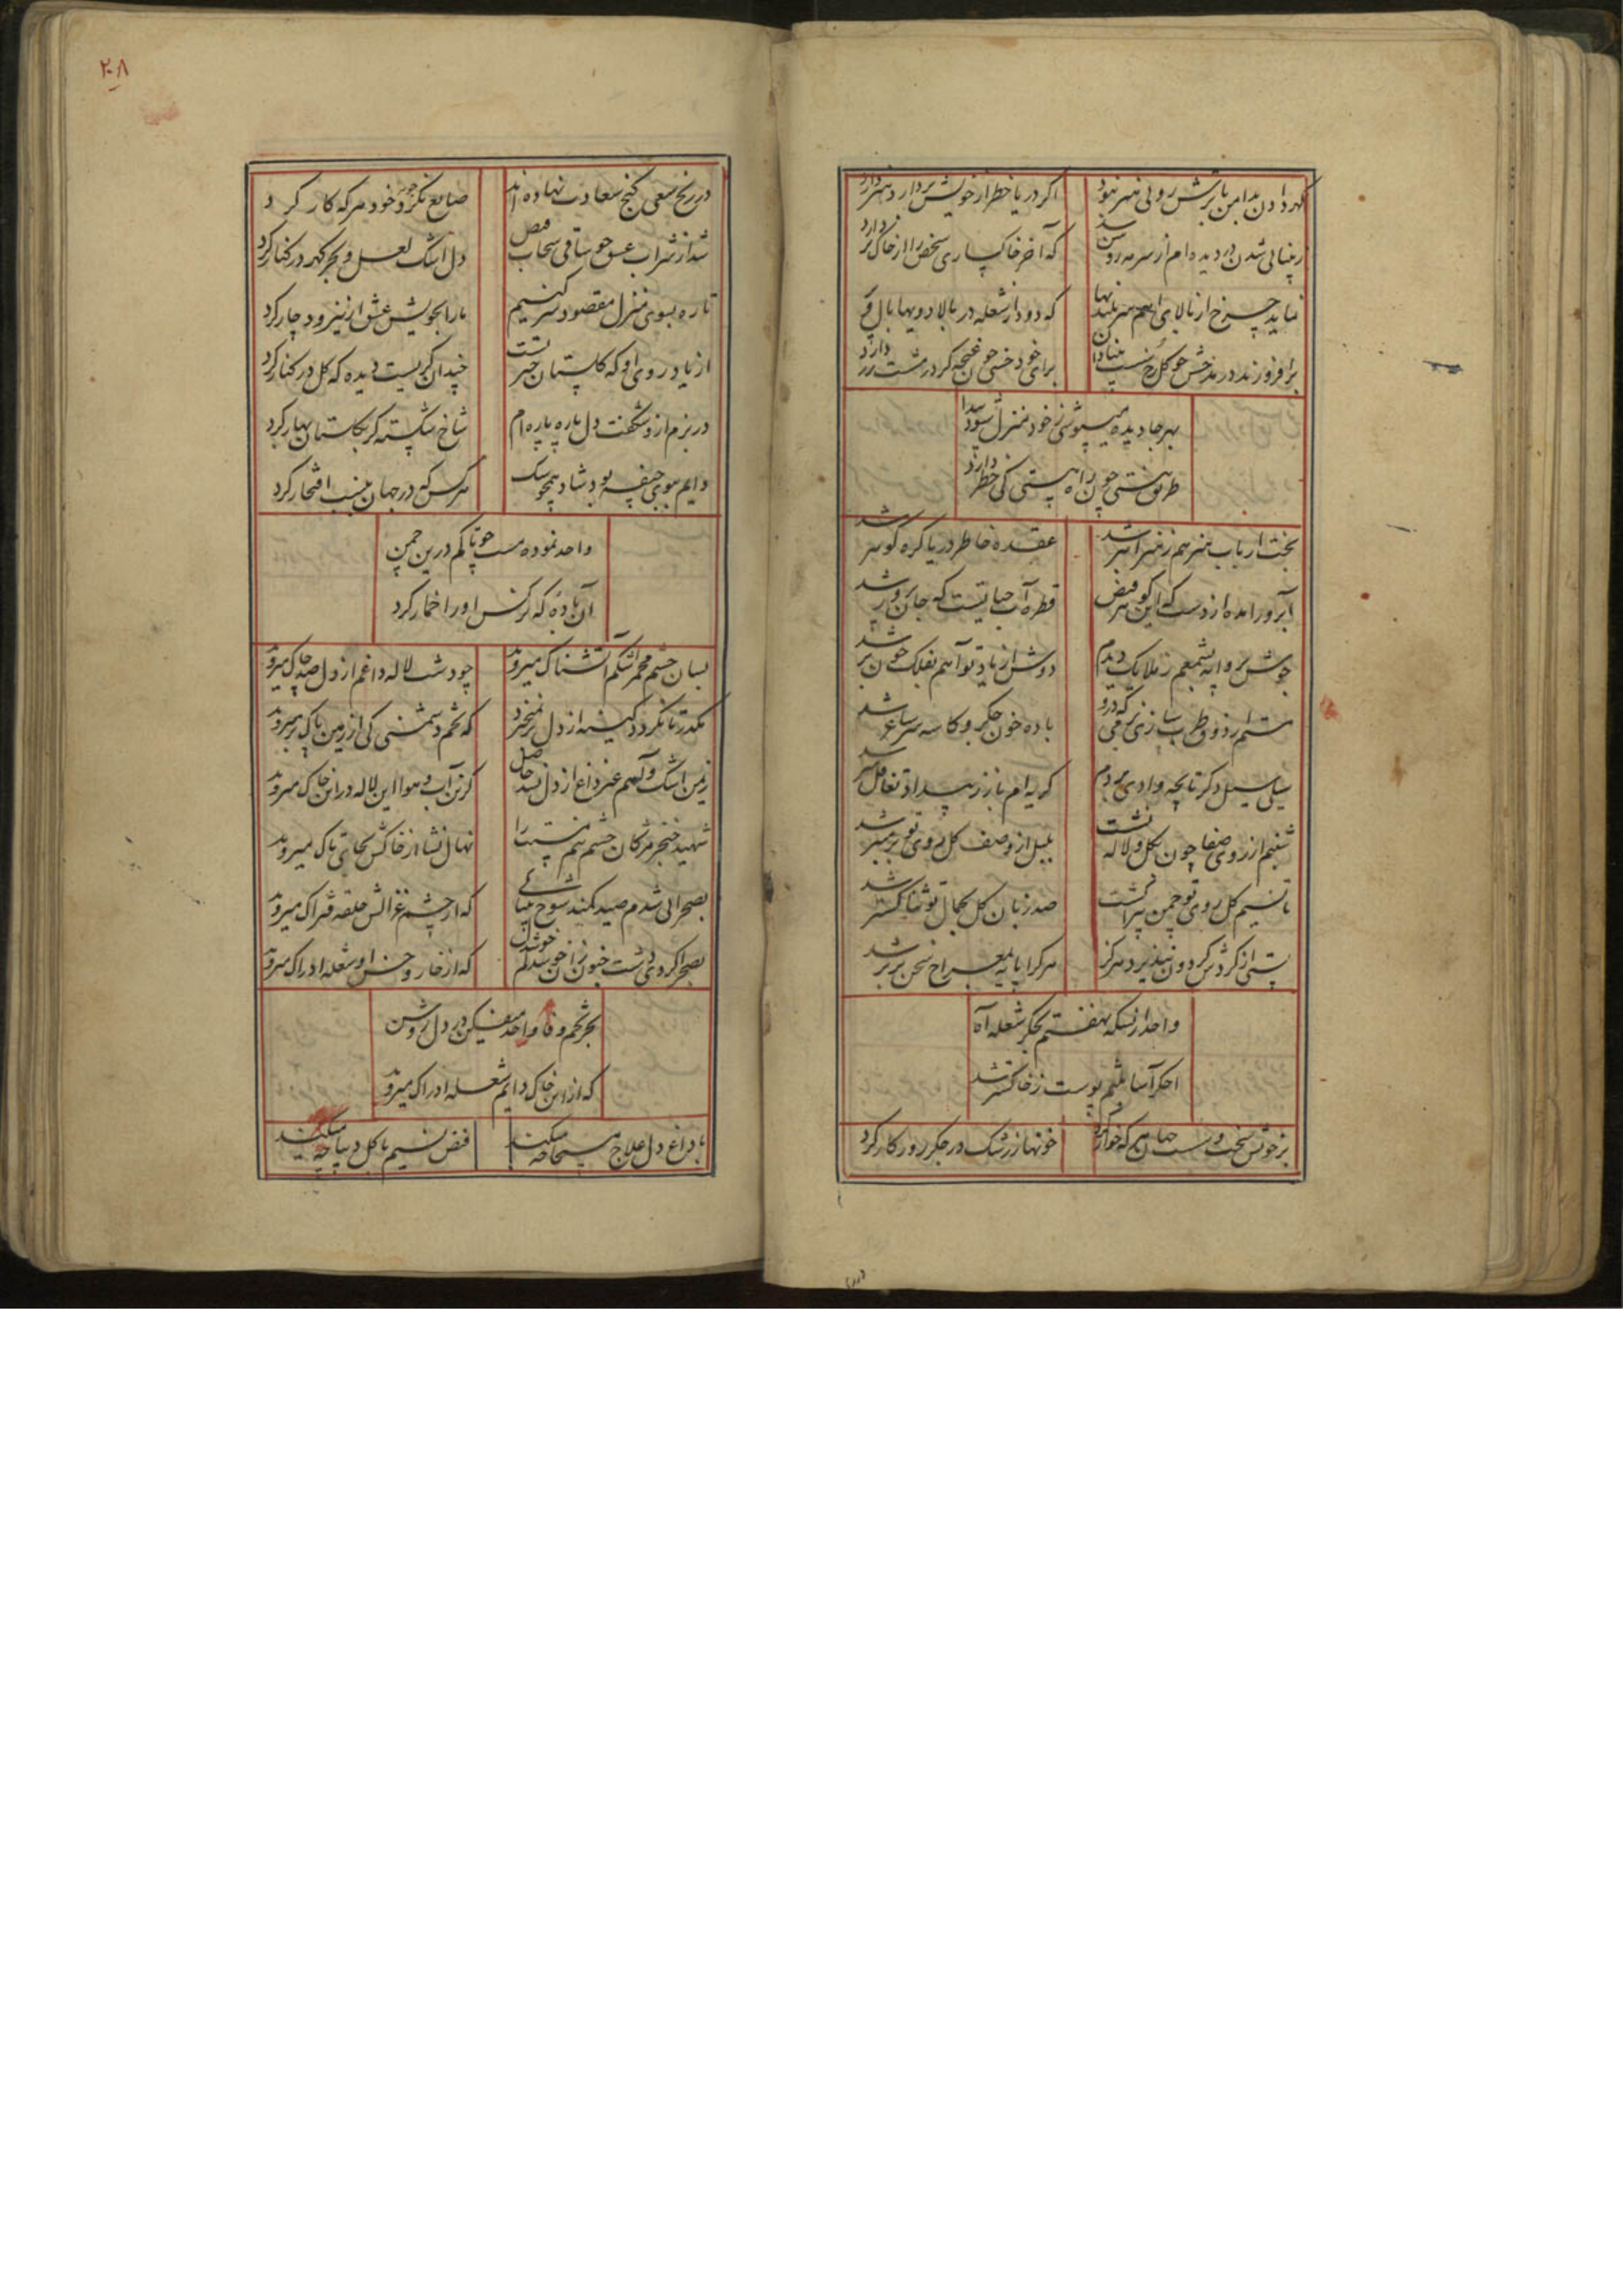 گهر دادن بدامن باترش روئی هنر نبود
اگر دریا خطر از خویش بردارد هنر دارد
ز بینائی شدن در دیده‌ام از سرمه روشن شد
که آخر خاکساری شخص را از خاک بر دارد
نماید چرخ از بالای آهم سربلندیها
که دود از شعله در بالا دویها بال و پر دارد
برافروزند در بخشش چو گل رخ
برای خود خسی چون غنچه گر در مشت زر دارد
بهر جا دیده میپوشی ز خود منزل شود پیدا
طریق نیستی چون راه هستی کی خطر دارد
بخت ارباب هنر هم ز هنر ابتر شد
عقده خاطر دریا گره گوهر شد
قطره آب حیاتیست که جان پرور شد
جوش پروانه بشمعم ز ملایک دیدم
دوش از یاد تو آهم بفلک چون بر شد
باده خون جگر و کاسه سر ساغر شد
سیلی سیل دگر تا بچه وادی بردم
گریه‌ام باز ز بیداد تغافل سر شد
شبنم از روی صفا چون بگل و لاله نشست
بلبل از وصف گل روی تو بر منبر شد
تا نسیم گل روی تو چمن پیرا گشت
صد زبان گل بجمال تو ثنا گستر شد
پستی از گردش گردون نپذیرد هرگز
هر کرا پایه معراج سخن برتر شد
واحد از بسکه نهفتم بجگر شعله آه
اخگر آسا بتنم پوست ز خاکستر شد
بر خویش سخت و سست جهان هر که خوار کرد
خونها ز رشک در جگر روزگار کرد
۲۰۸
در رنج سعی گنج سعادت نهاده‌اند
ضایع نکرد جوهر خود هر که کار کرد
شد از شراب عشق چو ساقی سحاب فیض
دل اشک لعل و بحر گهر در کنار کرد
تا ره بسوی منزل مقصود سر کنیم
ما را بخویش عشق از نیرو دچار کرد
از یاد روی او که گلستان جنتست
چندان گریست دیده که گل در کنار کرد
در بزم ازو شکفت دل پاره پاره‌ام
شاخ شکسته گر بگلستان بهار کرد
دایم ببوی جیفه بود شاد همچو سگ
هر کس که در جهان بنسب افتخار کرد
واحد نموده مست چو تاکم درین چمن
آن باده که نرگس او را خمار کرد
بسان چشم مجمر اشکم آتشناک میروید
چو دشت لاله داغم از دل صد چاک میروید
مکدر تا نگردد کینه از دل بر نمیخیزد
که تخم دشمنی کی از زمین پاک میروید
ز من اشک و آهم غیر داغ از دل نشد حاصل
کزین آب و هوا این لاله در این خاک میروید
شهید خنجر مژگان چشم نیم مستت را
نهال نشا از خاکش بجای تاک میروید
بصحرائی شدم صید کمند شوخ
که از چشم غزالش حلقه فتراک میروید
بصحرا گردی دشت جنون زان خوشدلم
که از خار و خس او شعله ادراک میروید
بجز تخم وفا واحد میفکن در دل روشن
که از این خاک دایم شعله ادراک میروید
با داغ دل علاج مسیحا چه میکند
فیض نسیم با گل دیبا چه میکند